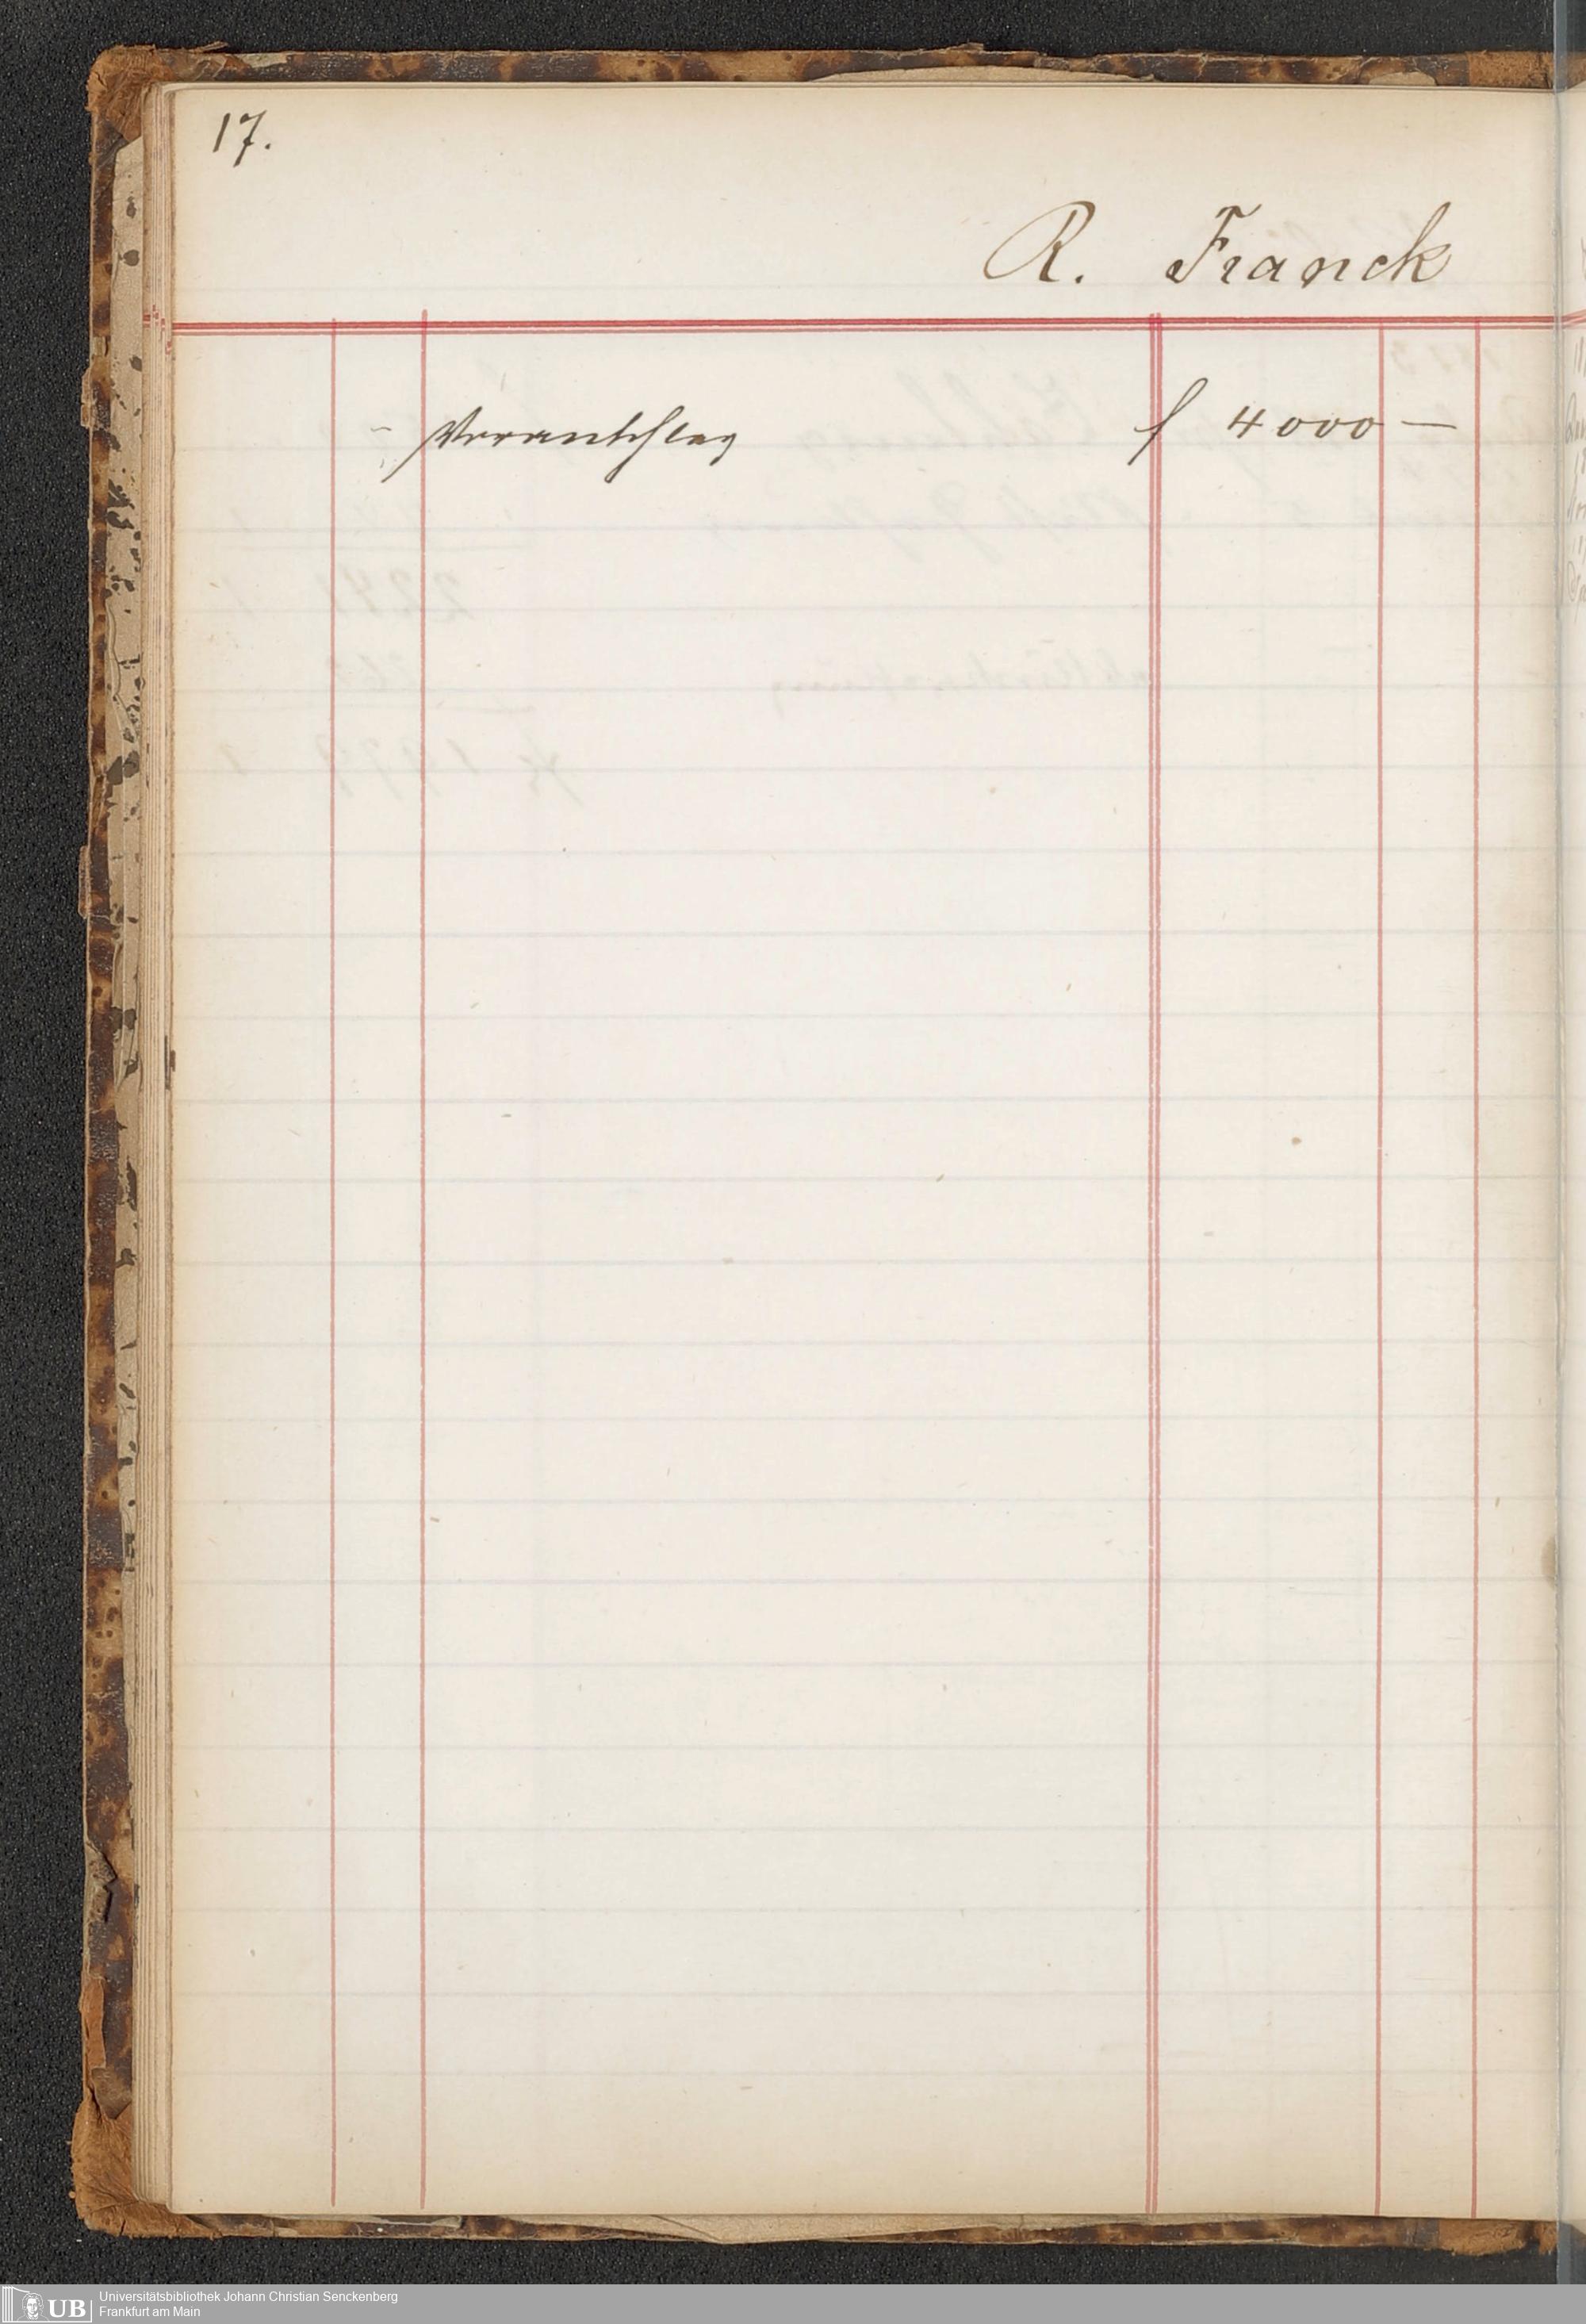 17.
R. Franck
Voranschlag f 4000 —
UB Universitätsbibliothek Johann Christian Senckenberg
Frankfurt am Main